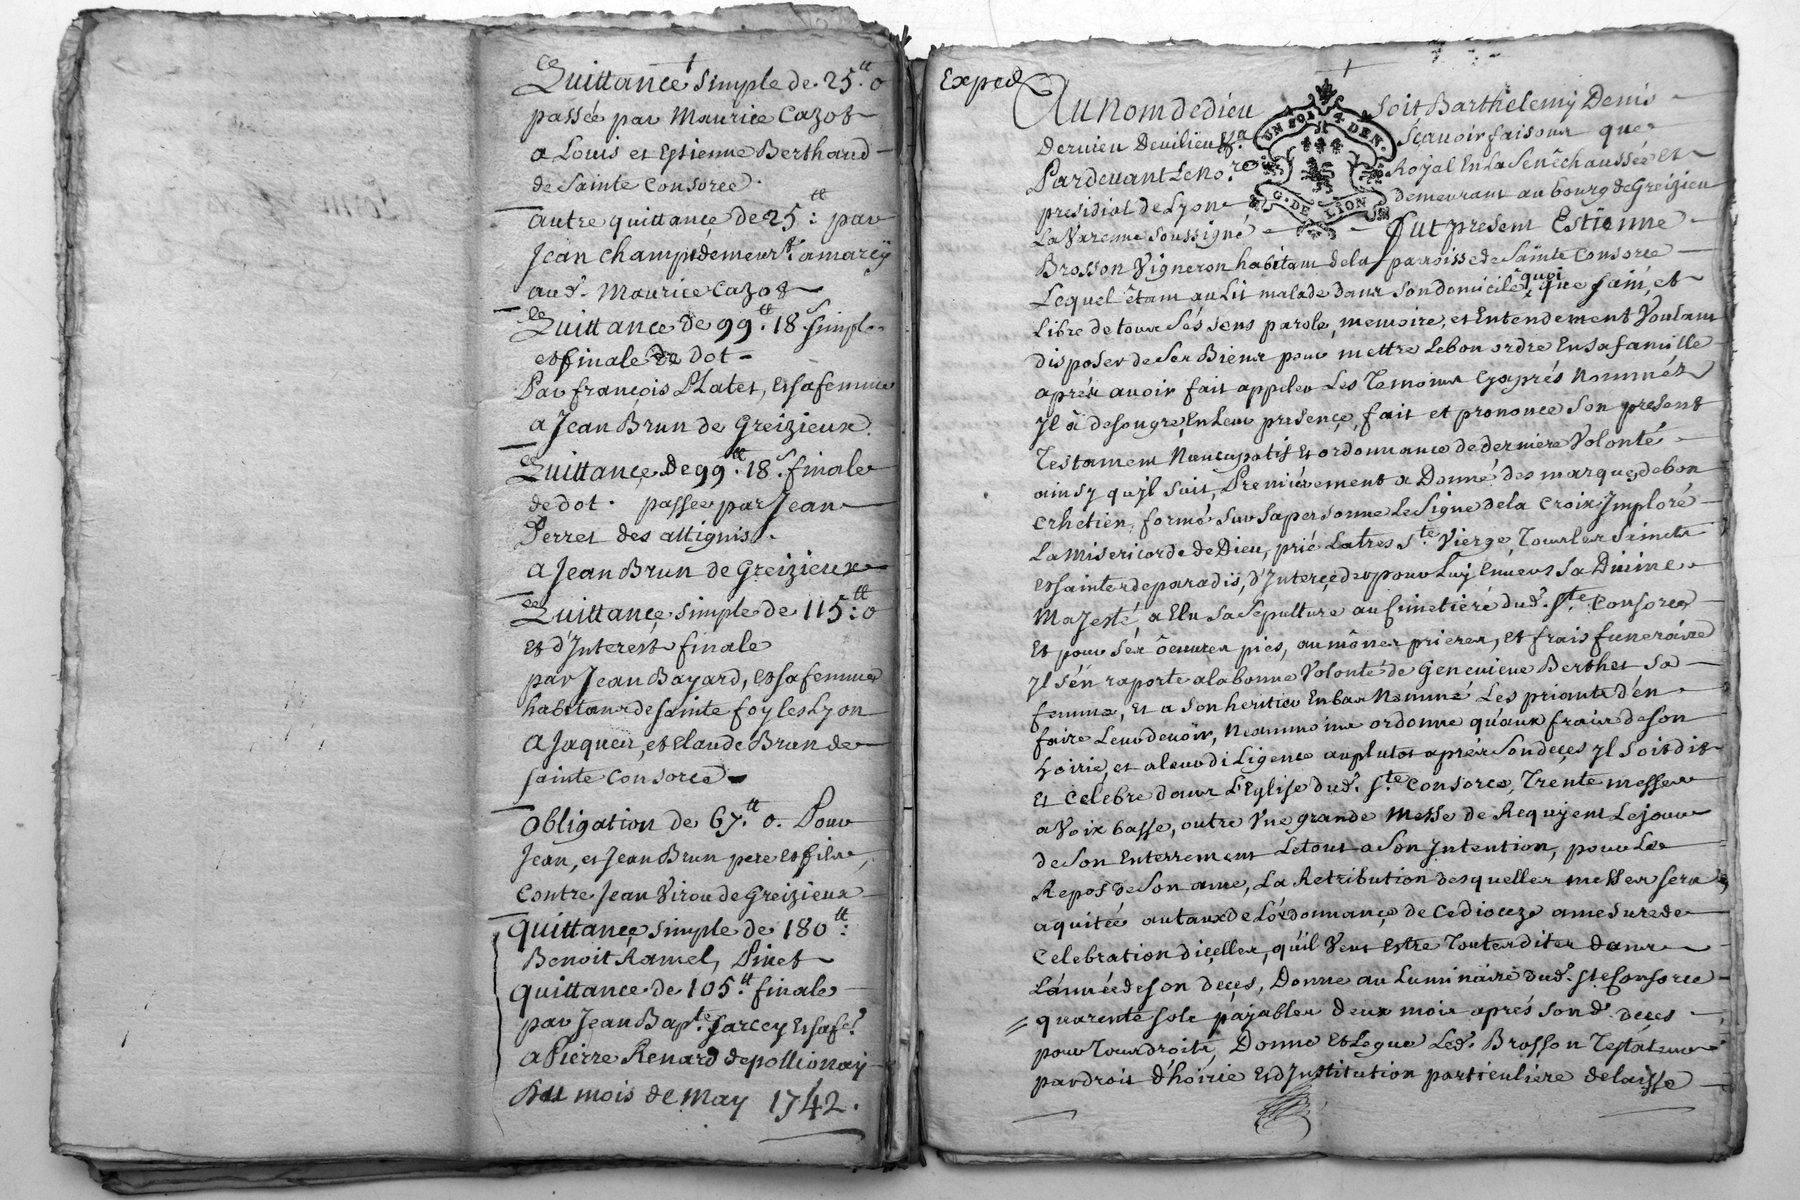 Quittance simple de 25.tt o
passée par Maurice Cazot
a Louis et Estienne Berthaud
de Sainte Consorce.
autre quittance de 25.tt par
Jean champt demeurt. a marcÿ
aud. Maurice Cazot
Quittance de 99.tt 18.s simple
et finale de dot
Par françois Platet, et sa femme
a Jean Brun de Greizieux.
Quittance de 99.tt 18.s finale
de dot. passée par Jean
Perret des attignis.
a Jean Brun de Greizieux
Quittance simple de 115.tt o
et d'Interest finale
par Jean Bayard, et sa femme
habitans de sainte foy les Lyon
a Jaques, et Claude Brun de
sainte Consorce
obligation de 67.tt o. Pour
Jean, et Jean Brun pere et fils,
Contre Jean Virou de Greizieux
quittance simple de 180.tt
Benoit Ramel, Pinet
quittance de 105.tt finale
par Jean Bapte. Jarcey et sa fe.
a Pierre Renard de pollionay
Du mois de May 1742.
Exped.
Au nom de dieu soit Barthelemÿ Denis
dernier Devilieu &.a Sçavoir faisons que
Pardevant Le No.re Royal En La Senéchaussée et
presidial de Lyon demeurant au bourg de Greizieu
La Varenne soussigné fut present Estienne
UN SOL 4. DEN.
G. DE LION
Brosson Vigneron habitant de la parroisse de Sainte Consorce
Lequel êtant au Lit malade dans son domicile, quoi que sain, et
Libre de tous ses sens parole, memoire, et Entendement Voulant
disposer de ses Biens pour mettre Le bon ordre En sa famille
aprés avoir fait appeler Les Temoins Cyaprés Nommés
Jl à de son gre, En Leur presence, fait et prononce Son present
Testament Nuncupatif et ordonnance de derniere Volonté
ainsy qu'jl suit, Premiérement a Donné des marques de bon
Crhetien, formé sur sa personne Le Signe de la Croix Jmploré
La Misericorde de Dieu, prié La tres Ste. Vierge, Tous les saincts
et saintes de paradis, d'Interçeder pour Luy Envers Sa Divine
Majesté, a Elu sa sépulture au Cimetiére dud. Ste. Consorce
Et pour ses oeuvres pies, aumônes prieres, et frais funeraire
Jl s'en raporte a la bonne Volonté de Genevieve Berthet sa
femme, Et a son heritier En bas Nommé Les priants d'en
faire Leur devoir, Neanmoins ordonne qu'aux frais de son
hoirie, et a leur diligence au plutot aprés son deces jl soit dit
Et Celebré dans L'Eglise dud. Ste. Consorce, Trente messes
a Voix basse, outre Vne grande Messe de Requjem Le jour
de son Enterrement Le tout a Son Jntention, pour Le
Repos de Son ame, La Retribution desquelles messes sera
aquitée au taux de L'ordonnance de ce dioceze a mesure de
Celebration d'icelles, qu'il Veut Estre Toutes dites dans
L'année de son deces, Donne au Luminaire dud. Ste Consorce
quarente sols payables deux mois aprés son d. deces
pour Tous droits, Donne et Legue Led. Brosson Testateur
par droit d'hoirie et d'Institution particuliere delaisse